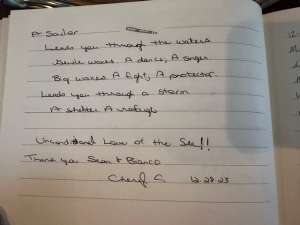 A Sailor
Leads you through the waters
waves A dance, A singer
Big waves A fight, A protector
Leads you through a storm
A shelter A refuge
Love of the Sea!!
Thank you Sean & Bianca
Cheryl C. 12-28-23
12